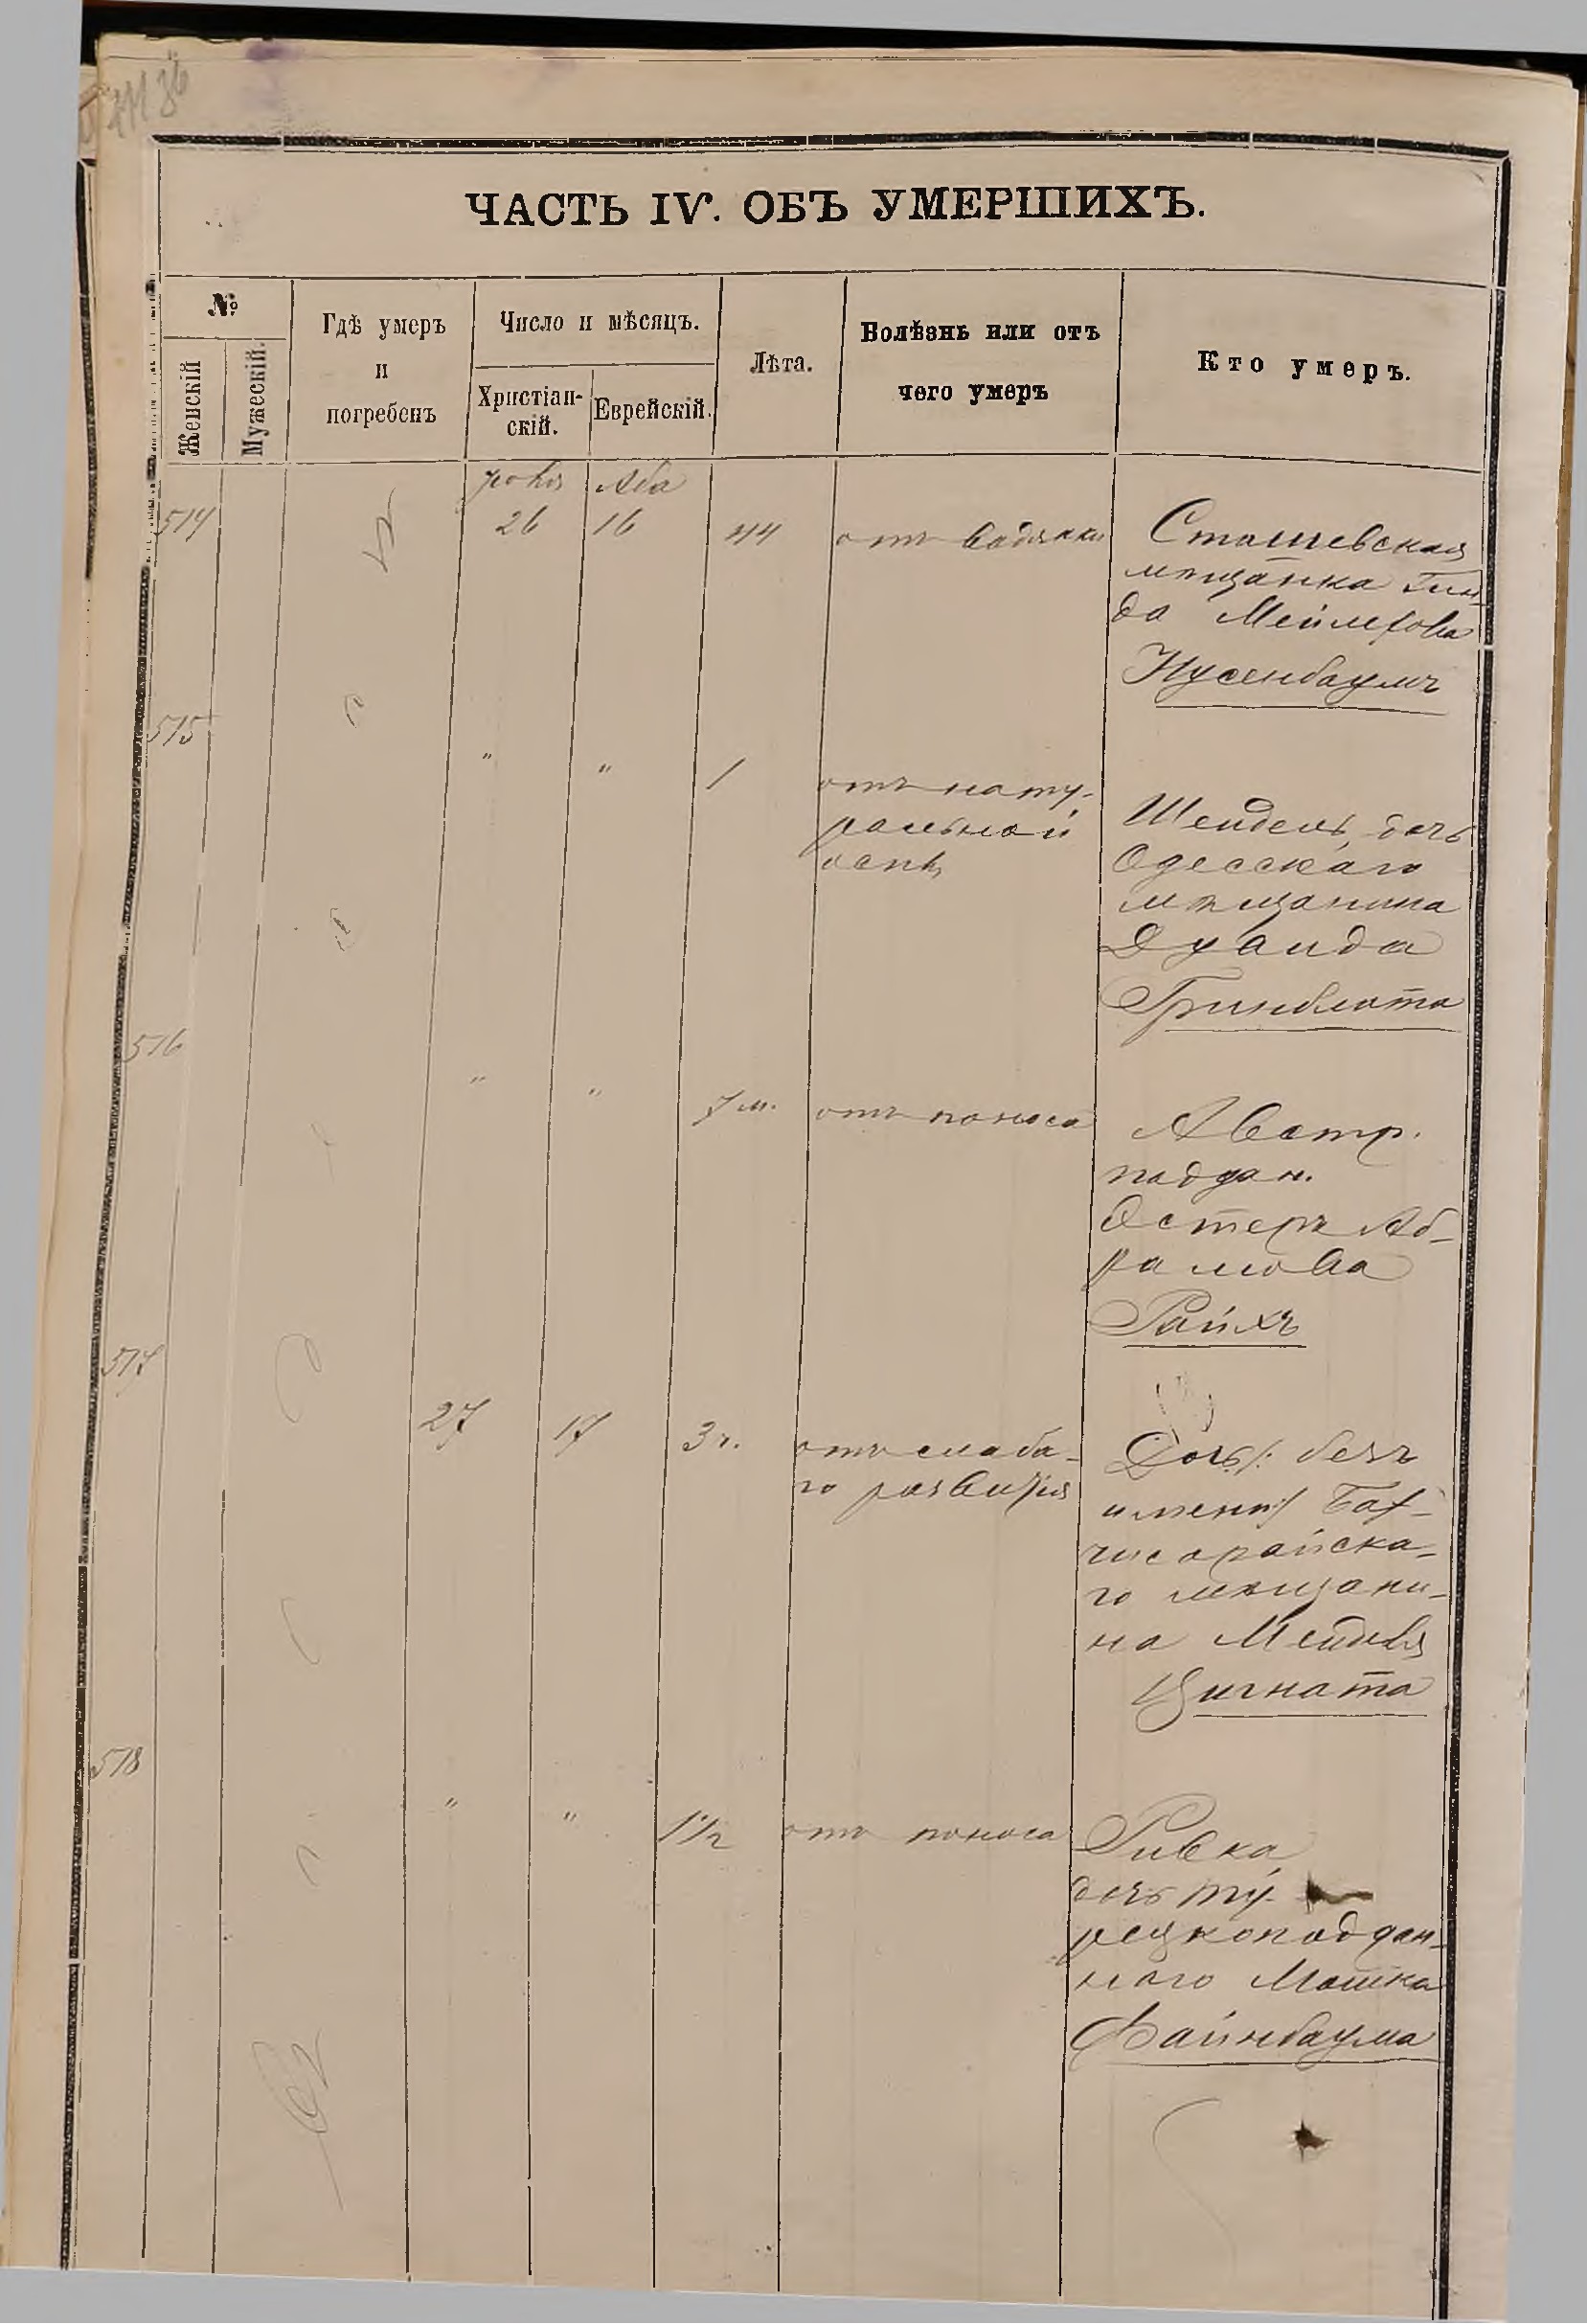 ЧАСТЬ IV. ОБЪ УМЕРШИХЪ.
№
Женскій
Мужескій.
Гдѣ умеръ
и
погребенъ
Число и мѣсяцъ.
Христіан-
скій.
Еврейскій.
Лѣта.
Болѣзнь или отъ
чего умеръ
Кто умеръ.
Аба
514 26 16 44 отъ водянки
Сташевская
мѣщанка Гин-
да Меилехова
Нусенбаумъ
515 " " 1 отъ нату-
ральной
оспы
Шендель, дочь
Одесскаго
мѣщанина
Дувида
Гринблата
516 " " 7 м. отъ поноса
Австр.
поддан.
Остеръ Аб-
рамова
Райхъ
517 27 17 3 ч. отъ слаба-
го развитія
Дочь /: безъ
имени :/ Бах-
чисарайска-
го мѣщани-
на
Цигната
518 " " 1 1/2 отъ поноса
Ривка,
дочь ту-
рецкоподдан-
наго Мошка
Файнбаума